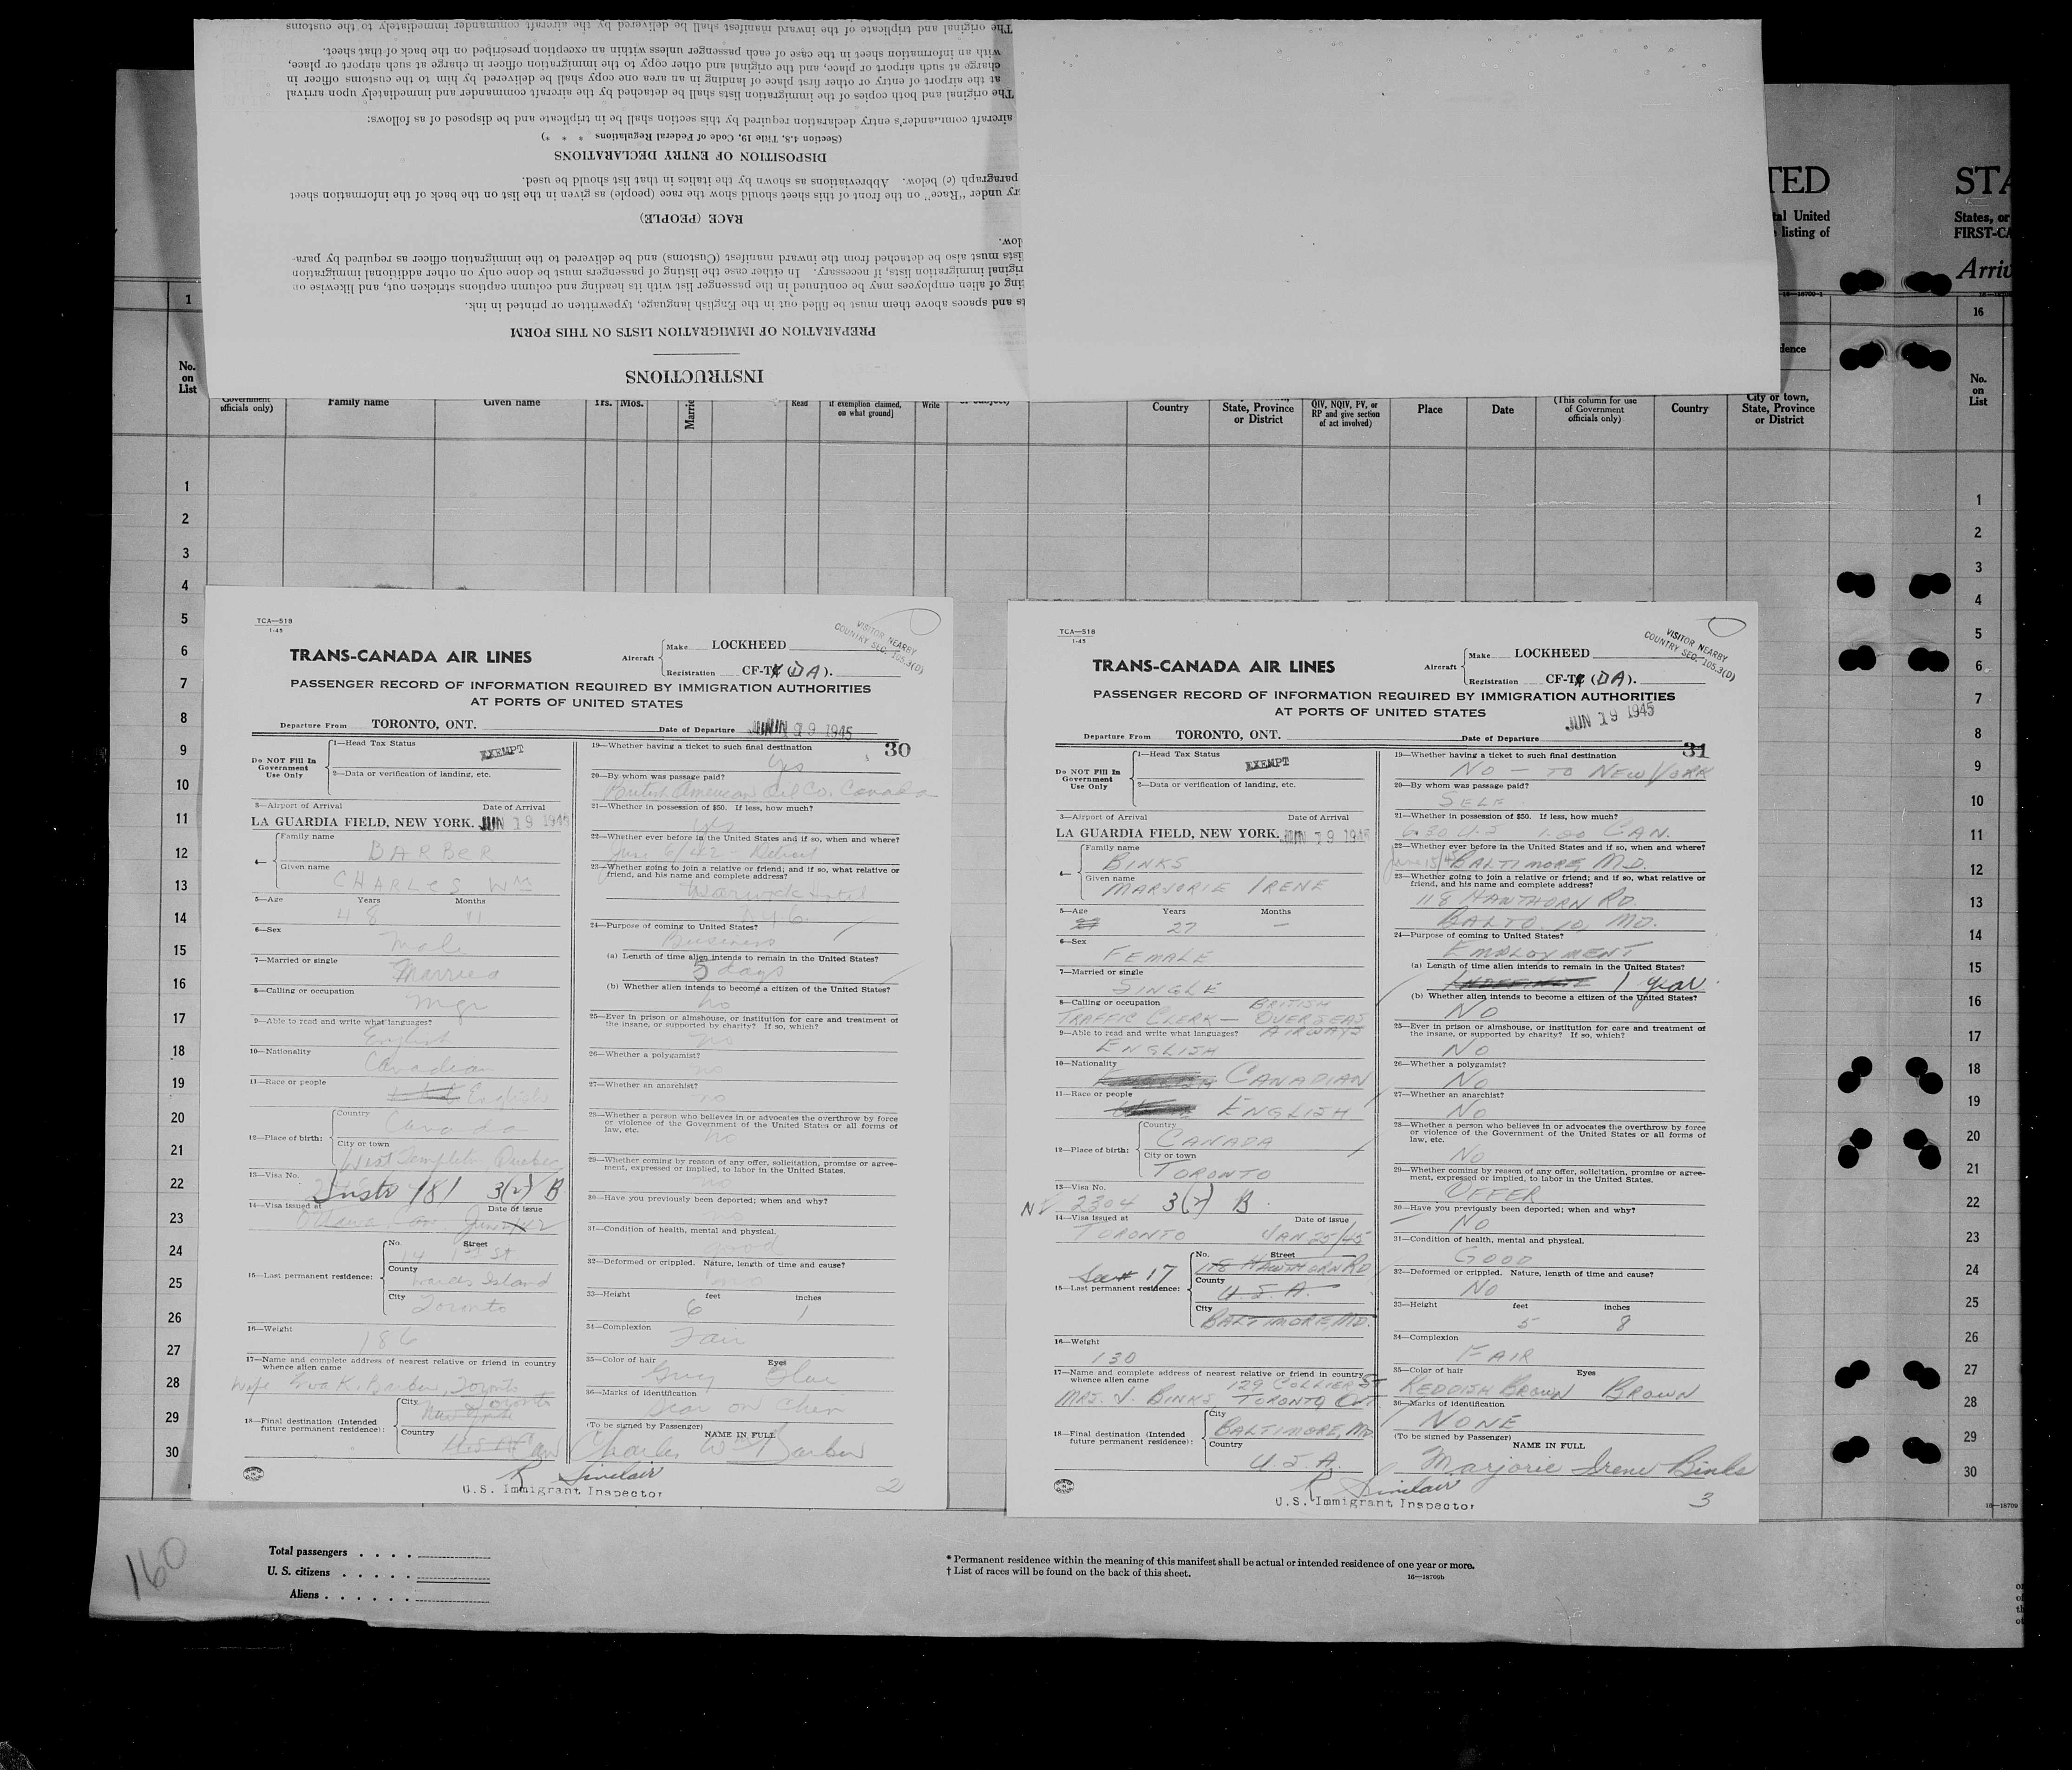 INSTRUCTIONS
PREPARATION OF IMMIGRATION LISTS ON THIS FORM
ts and spaces above them must be filled out in the English language, typewritten or printed in ink.
ting of alien employees may be continued in the passenger list with its heading and column captions stricken out, and likewise on
riginal immigration lists, if necessary. In either case the listing of passengers must be done only on other additional immigration
lists must also be detached from the inward manifest (Customs) and be delivered to the immigration officer as required by para-
low.
RACE (PEOPLE)
ry under "Race" on the front of this sheet should show the race (people) as given in the list on the back of the information sheet
paragraph (c) below. Abbreviations as shown by the italics in that list should be used.
DISPOSITION OF ENTRY DECLARATIONS
(Section 4.8, Title 19, Code of Federal Regulations * * *)
aircraft commander's entry declaration required by this section shall be in triplicate and be disposed of as follows:
The original and both copies of the immigration lists shall be detached by the aircraft commander and immediately upon arrival
at the airport of entry or other first place of landing in an area one copy shall be delivered by him to the customs officer in
charge at such airport or place, and the original and other copy to the immigration officer in charge at such airport or place,
with an information sheet in the case of each passenger unless within an exception prescribed on the back of that sheet.
The original and triplicate of the inward manifest shall be delivered by the aircraft commander immediately to the customs
TED STA
tal United States, or
listing of FIRST-CA
Arriv
16—18709-1
1 16
dence
No. on List
Government officials only)
Family name
Given name
Yrs. Mos.
Marrie
Read
If exemption claimed, on what ground)
Write
or subject)
Country
State, Province or District
QIV, NQIV, PV, or RP and give section of act involved)
Place
Date
(This column for use of Government officials only)
Country
City or town, State, Province or District
No. on List
1
2
3
4
5
6
7
8
9
10
11
12
13
14
15
16
17
18
19
20
21
22
23
24
25
26
27
28
29
30
TCA—518
1-45
VISITOR NEARBY
COUNTRY SEC. 105.3(D)
TRANS-CANADA AIR LINES
Aircraft Make LOCKHEED
Registration CF-TC (DA).
PASSENGER RECORD OF INFORMATION REQUIRED BY IMMIGRATION AUTHORITIES
AT PORTS OF UNITED STATES
Departure From TORONTO, ONT. Date of Departure JUN 19 1945
30
Do NOT Fill In Government Use Only
1—Head Tax Status EXEMPT
2—Data or verification of landing, etc.
3—Airport of Arrival Date of Arrival
LA GUARDIA FIELD, NEW YORK. JUN 19 1945
4— Family name BARBER
Given name CHARLES Wm
5—Age Years 48 Months 11
6—Sex Male
7—Married or single Married
8—Calling or occupation Mgr
9—Able to read and write what languages? English
10—Nationality Canadian
11—Race or people English
12—Place of birth: Country Canada
City or town West Templeton Quebec
13—Visa No. Instr 181 3(2) B
14—Visa issued at Ottawa Can Date of issue
15—Last permanent residence: No. 14 Street 1st St
County Wards Island
City Toronto
16—Weight 186
17—Name and complete address of nearest relative or friend in country whence alien came
Wife Eva K. Barber, Toronto
18—Final destination (Intended future permanent residence): City Toronto
New York
Country Can
19—Whether having a ticket to such final destination
Yes
20—By whom was passage paid?
British American Oil Co. Canada
21—Whether in possession of $50. If less, how much?
Yes
22—Whether ever before in the United States and if so, when and where?
June 6/42 Detroit
23—Whether going to join a relative or friend; and if so, what relative or friend, and his name and complete address?
Warwick Hotel
N.Y.C.
24—Purpose of coming to United States?
Business
(a) Length of time alien intends to remain in the United States?
5 days
(b) Whether alien intends to become a citizen of the United States?
no
25—Ever in prison or almshouse, or institution for care and treatment of the insane, or supported by charity? If so, which?
no
26—Whether a polygamist?
no
27—Whether an anarchist?
no
28—Whether a person who believes in or advocates the overthrow by force or violence of the Government of the United States or all forms of law, etc.
no
29—Whether coming by reason of any offer, solicitation, promise or agreement, expressed or implied, to labor in the United States.
no
30—Have you previously been deported; when and why?
no
31—Condition of health, mental and physical.
good
32—Deformed or crippled. Nature, length of time and cause?
no
33—Height 6 feet 1 inches
34—Complexion Fair
35—Color of hair Grey Eyes Blue
36—Marks of identification
Scar on Chin
(To be signed by Passenger) NAME IN FULL
Charles Wm Barber
R Sinclair
U.S. Immigrant Inspector
2
TCA—518
1-45
VISITOR NEARBY
COUNTRY SEC. 105.3(D)
TRANS-CANADA AIR LINES
Aircraft Make LOCKHEED
Registration CF-TC (DA).
PASSENGER RECORD OF INFORMATION REQUIRED BY IMMIGRATION AUTHORITIES
AT PORTS OF UNITED STATES
Departure From TORONTO, ONT. Date of Departure JUN 19 1945
31
Do NOT Fill In Government Use Only
1—Head Tax Status EXEMPT
2—Data or verification of landing, etc.
3—Airport of Arrival Date of Arrival
LA GUARDIA FIELD, NEW YORK. JUN 19 1945
4— Family name BINKS
Given name MARJORIE IRENE
5—Age Years 27 Months —
6—Sex FEMALE
7—Married or single SINGLE
8—Calling or occupation BRITISH
TRAFFIC CLERK — OVERSEAS
AIRWAYS
9—Able to read and write what languages? ENGLISH
10—Nationality CANADIAN
11—Race or people ENGLISH
12—Place of birth: Country CANADA
City or town TORONTO
13—Visa No. 2304 3(2) B
14—Visa issued at TORONTO Date of issue JAN 25/45
15—Last permanent residence: See # 17
No. Street 118 HAWTHORN RD
County U.S.A.
City BALTIMORE, MD.
16—Weight 130
17—Name and complete address of nearest relative or friend in country whence alien came 129 COLLIER ST
MRS. J. BINKS, TORONTO ONT
18—Final destination (Intended future permanent residence): City BALTIMORE, MD
Country U.S.A.
19—Whether having a ticket to such final destination
NO — TO NEW YORK
20—By whom was passage paid?
SELF
21—Whether in possession of $50. If less, how much?
6.30 U.S 1.00 CAN.
22—Whether ever before in the United States and if so, when and where?
June 15/45 BALTIMORE, MD.
23—Whether going to join a relative or friend; and if so, what relative or friend, and his name and complete address?
118 HAWTHORN RD.
BALTO. 10, MD.
24—Purpose of coming to United States?
EMPLOYMENT
(a) Length of time alien intends to remain in the United States?
INDEFINITE 1 year
(b) Whether alien intends to become a citizen of the United States?
NO
25—Ever in prison or almshouse, or institution for care and treatment of the insane, or supported by charity? If so, which?
NO
26—Whether a polygamist?
NO
27—Whether an anarchist?
NO
28—Whether a person who believes in or advocates the overthrow by force or violence of the Government of the United States or all forms of law, etc.
NO
29—Whether coming by reason of any offer, solicitation, promise or agreement, expressed or implied, to labor in the United States.
OFFER
30—Have you previously been deported; when and why?
NO
31—Condition of health, mental and physical.
GOOD
32—Deformed or crippled. Nature, length of time and cause?
NO
33—Height 5 feet 8 inches
34—Complexion FAIR
35—Color of hair REDDISH BROWN Eyes BROWN
36—Marks of identification
NONE
(To be signed by Passenger) NAME IN FULL
Marjorie Irene Binks
R Sinclair
U.S. Immigrant Inspector
3
1
2
3
4
5
6
7
8
9
10
11
12
13
14
15
16
17
18
19
20
21
22
23
24
25
26
27
28
29
30
16—18709
160
Total passengers . . . .
U. S. citizens . . . . .
Aliens . . . . . .
* Permanent residence within the meaning of this manifest shall be actual or intended residence of one year or more.
† List of races will be found on the back of this sheet.
16—18709b